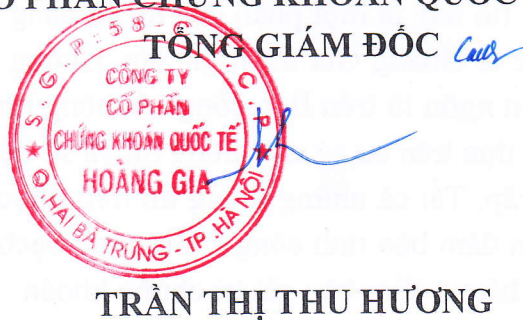 PHẦN CHỨNG KHOÁN QUỐC
TỔNG GIÁM ĐỐC
S.G.P:58
C.T.C.P
CÔNG TY
CỔ PHẦN
CHỨNG KHOÁN QUỐC TẾ
HOÀNG GIA
Q.HAI BÀ TRƯNG - TP HÀ NỘI
TRẦN THỊ THU HƯƠNG